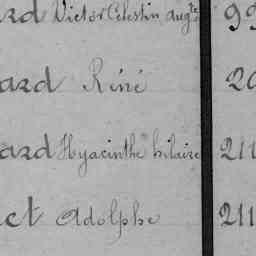 ard Victor Celestin Aug.te 99
ard Réné 20
ard Hyacinthe hilaire 211
ct Adolphe 211